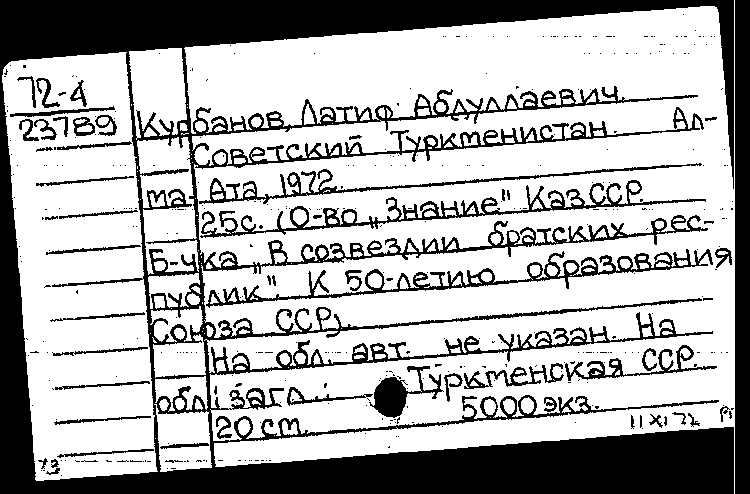 72-4
23789
Курбанов, Латиф Абдуллаевич.
Советский Туркменистан. Ал-
ма-Ата, 1972.
25с. (О-во „Знание" КазССР.
Б-чка „В созвездии братских рес-
публик". К 50-летию образования
Союза ССР).
На обл. авт. не указан. На
обл. загл.: Туркменская ССР.
20 см. 5000 экз.
11 XI 72
73